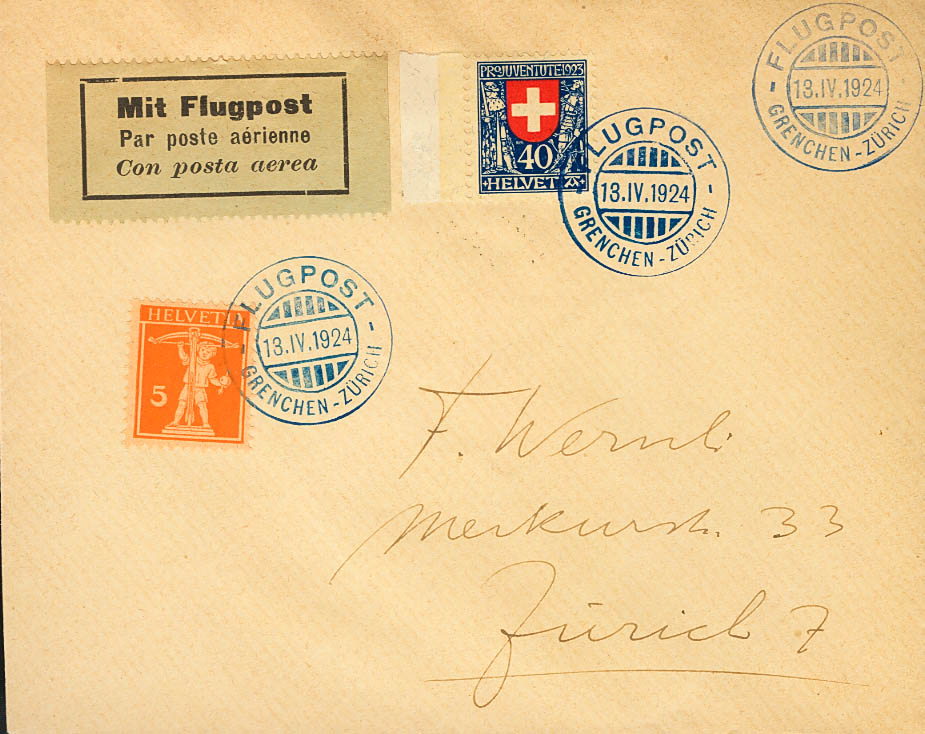 Mit Flugpost
Par poste aérienne
Con posta aerea
PRO JUVENTUTE 1923
40
HELVETIA
FLUGPOST
13.IV.1924
GRENCHEN-ZÜRICH
FLUGPOST
13.IV.1924
GRENCHEN-ZÜRICH
HELVETIA
5
FLUGPOST
13.IV.1924
GRENCHEN-ZÜRICH
F. Wernli
Merkurstr. 33
Zürich 7